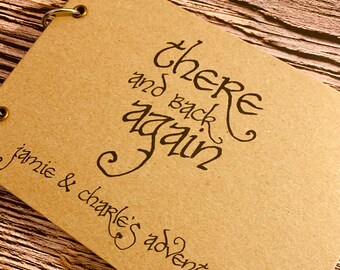 there
and back
again
jamie & charlie's advent